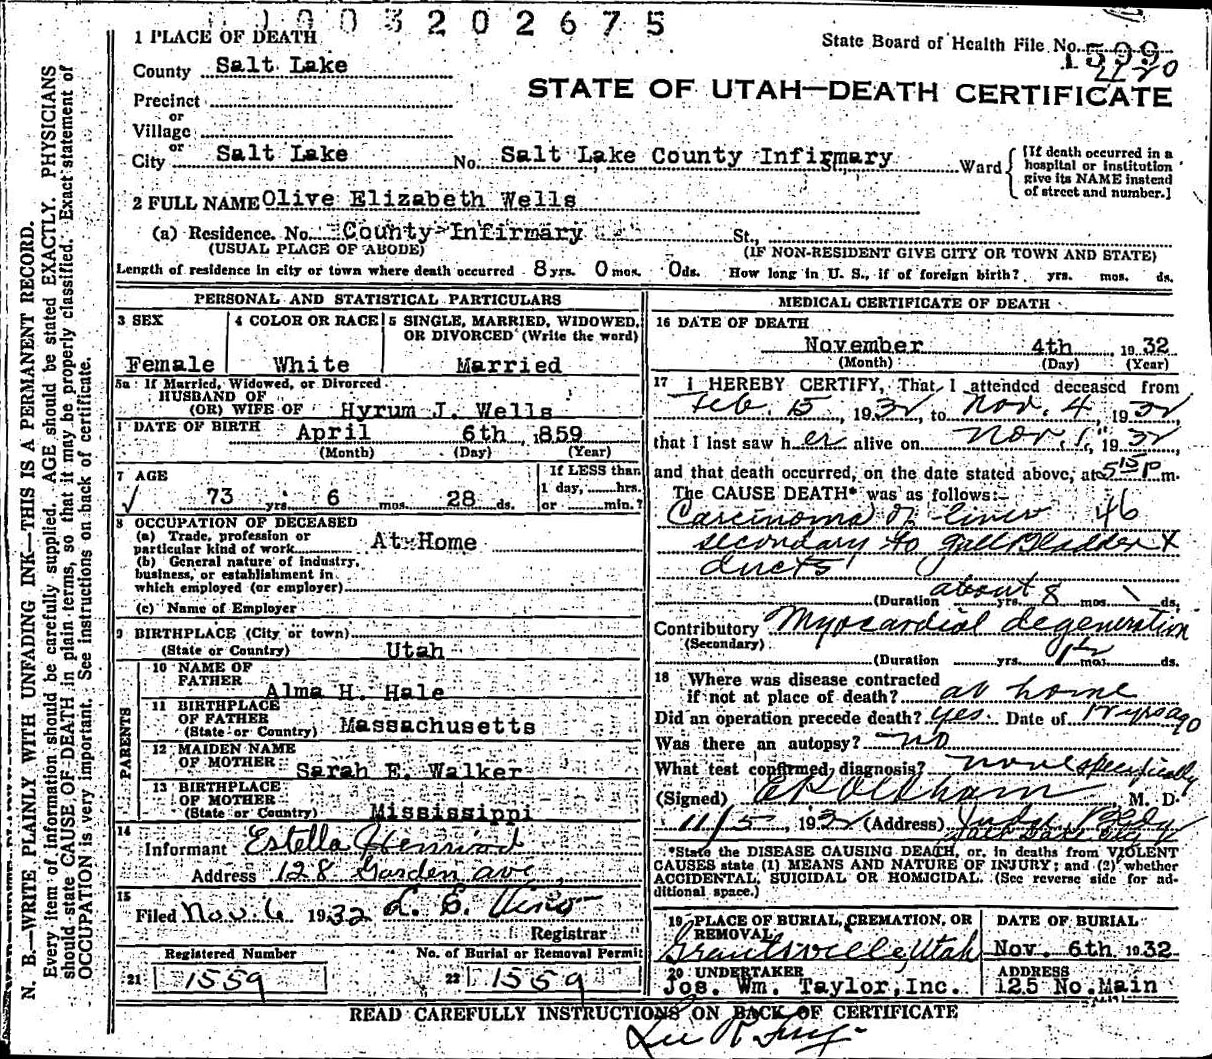 003202675
1 PLACE OF DEATH
State Board of Health File No.
County Salt Lake
STATE OF UTAH—DEATH CERTIFICATE
Precinct
or
Village
or
City Salt Lake No. Salt Lake County Infirmary Ward
[If death occurred in a
hospital or institution
give its NAME instead
of street and number.]
2 FULL NAME Olive Elizabeth Wells
(a) Residence. No. County Infirmary St.,
(USUAL PLACE OF ABODE) (IF NON-RESIDENT GIVE CITY OR TOWN AND STATE)
Length of residence in city or town where death occurred 8 yrs. 0 mos. 0 ds. How long in U. S., if of foreign birth? yrs. mos. ds.
PERSONAL AND STATISTICAL PARTICULARS
3 SEX
Female
4 COLOR OR RACE
White
5 SINGLE, MARRIED, WIDOWED,
OR DIVORCED (Write the word)
Married
5a If Married, Widowed, or Divorced
HUSBAND OF
(OR) WIFE OF Hyrum J. Wells
DATE OF BIRTH April 6th, 1859
(Month) (Day) (Year)
7 AGE
73 yrs. 6 mos. 28 ds.
If LESS than
1 day, hrs.
or min.?
8 OCCUPATION OF DECEASED
(a) Trade, profession or
particular kind of work At Home
(b) General nature of industry,
business, or establishment in
which employed (or employer)
(c) Name of Employer
9 BIRTHPLACE (City or town)
(State or Country) Utah
PARENTS
10 NAME OF
FATHER Alma H. Hale
11 BIRTHPLACE
OF FATHER
(State or Country) Massachusetts
12 MAIDEN NAME
OF MOTHER Sarah E. Walker
13 BIRTHPLACE
OF MOTHER
(State or Country) Mississippi
14
Informant Estella
Address 128 Garden ave
15
Filed Nov. 6 1932
Registrar
Registered Number
21 1559
No. of Burial or Removal Permit
22 1559
MEDICAL CERTIFICATE OF DEATH
16 DATE OF DEATH
November 4th, 1932
(Month) (Day) (Year)
17 I HEREBY CERTIFY, That I attended deceased from
Feb. 15, 1932, to Nov. 4, 1932
that I last saw her alive on Nov. 1, 1932
and that death occurred, on the date stated above, at 5 15 P m.
The CAUSE DEATH* was as follows:
Carcinoma of liver 46
secondary to gall Bladder &
ducts
(Duration about yrs. 8 mos. ds.
Contributory Myocardial degeneration
(Secondary)
(Duration yrs. mos. ds.
18 Where was disease contracted
if not at place of death? at home
Did an operation precede death? yes. Date of yrs ago
Was there an autopsy? no
What test confirmed diagnosis? none specifically
(Signed) M. D.
11/5, 1932 (Address) Judge Bldg
Salt Lake City
*State the DISEASE CAUSING DEATH, or, in deaths from VIOLENT
CAUSES state (1) MEANS AND NATURE OF INJURY; and (2) whether
ACCIDENTAL, SUICIDAL OR HOMICIDAL. (See reverse side for ad-
ditional space.)
19 PLACE OF BURIAL, CREMATION, OR
REMOVAL
Grantsville, Utah
DATE OF BURIAL
Nov. 6th 1932
20 UNDERTAKER
Jos. Wm. Taylor, Inc.
ADDRESS
125 No. Main
READ CAREFULLY INSTRUCTIONS ON BACK OF CERTIFICATE
N. B.—WRITE PLAINLY WITH UNFADING INK—THIS IS A PERMANENT RECORD.
Every item of information should be carefully supplied. AGE should be stated EXACTLY. PHYSICIANS
should state CAUSE OF DEATH in plain terms, so that it may be properly classified. Exact statement of
OCCUPATION is very important. See instructions on back of certificate.